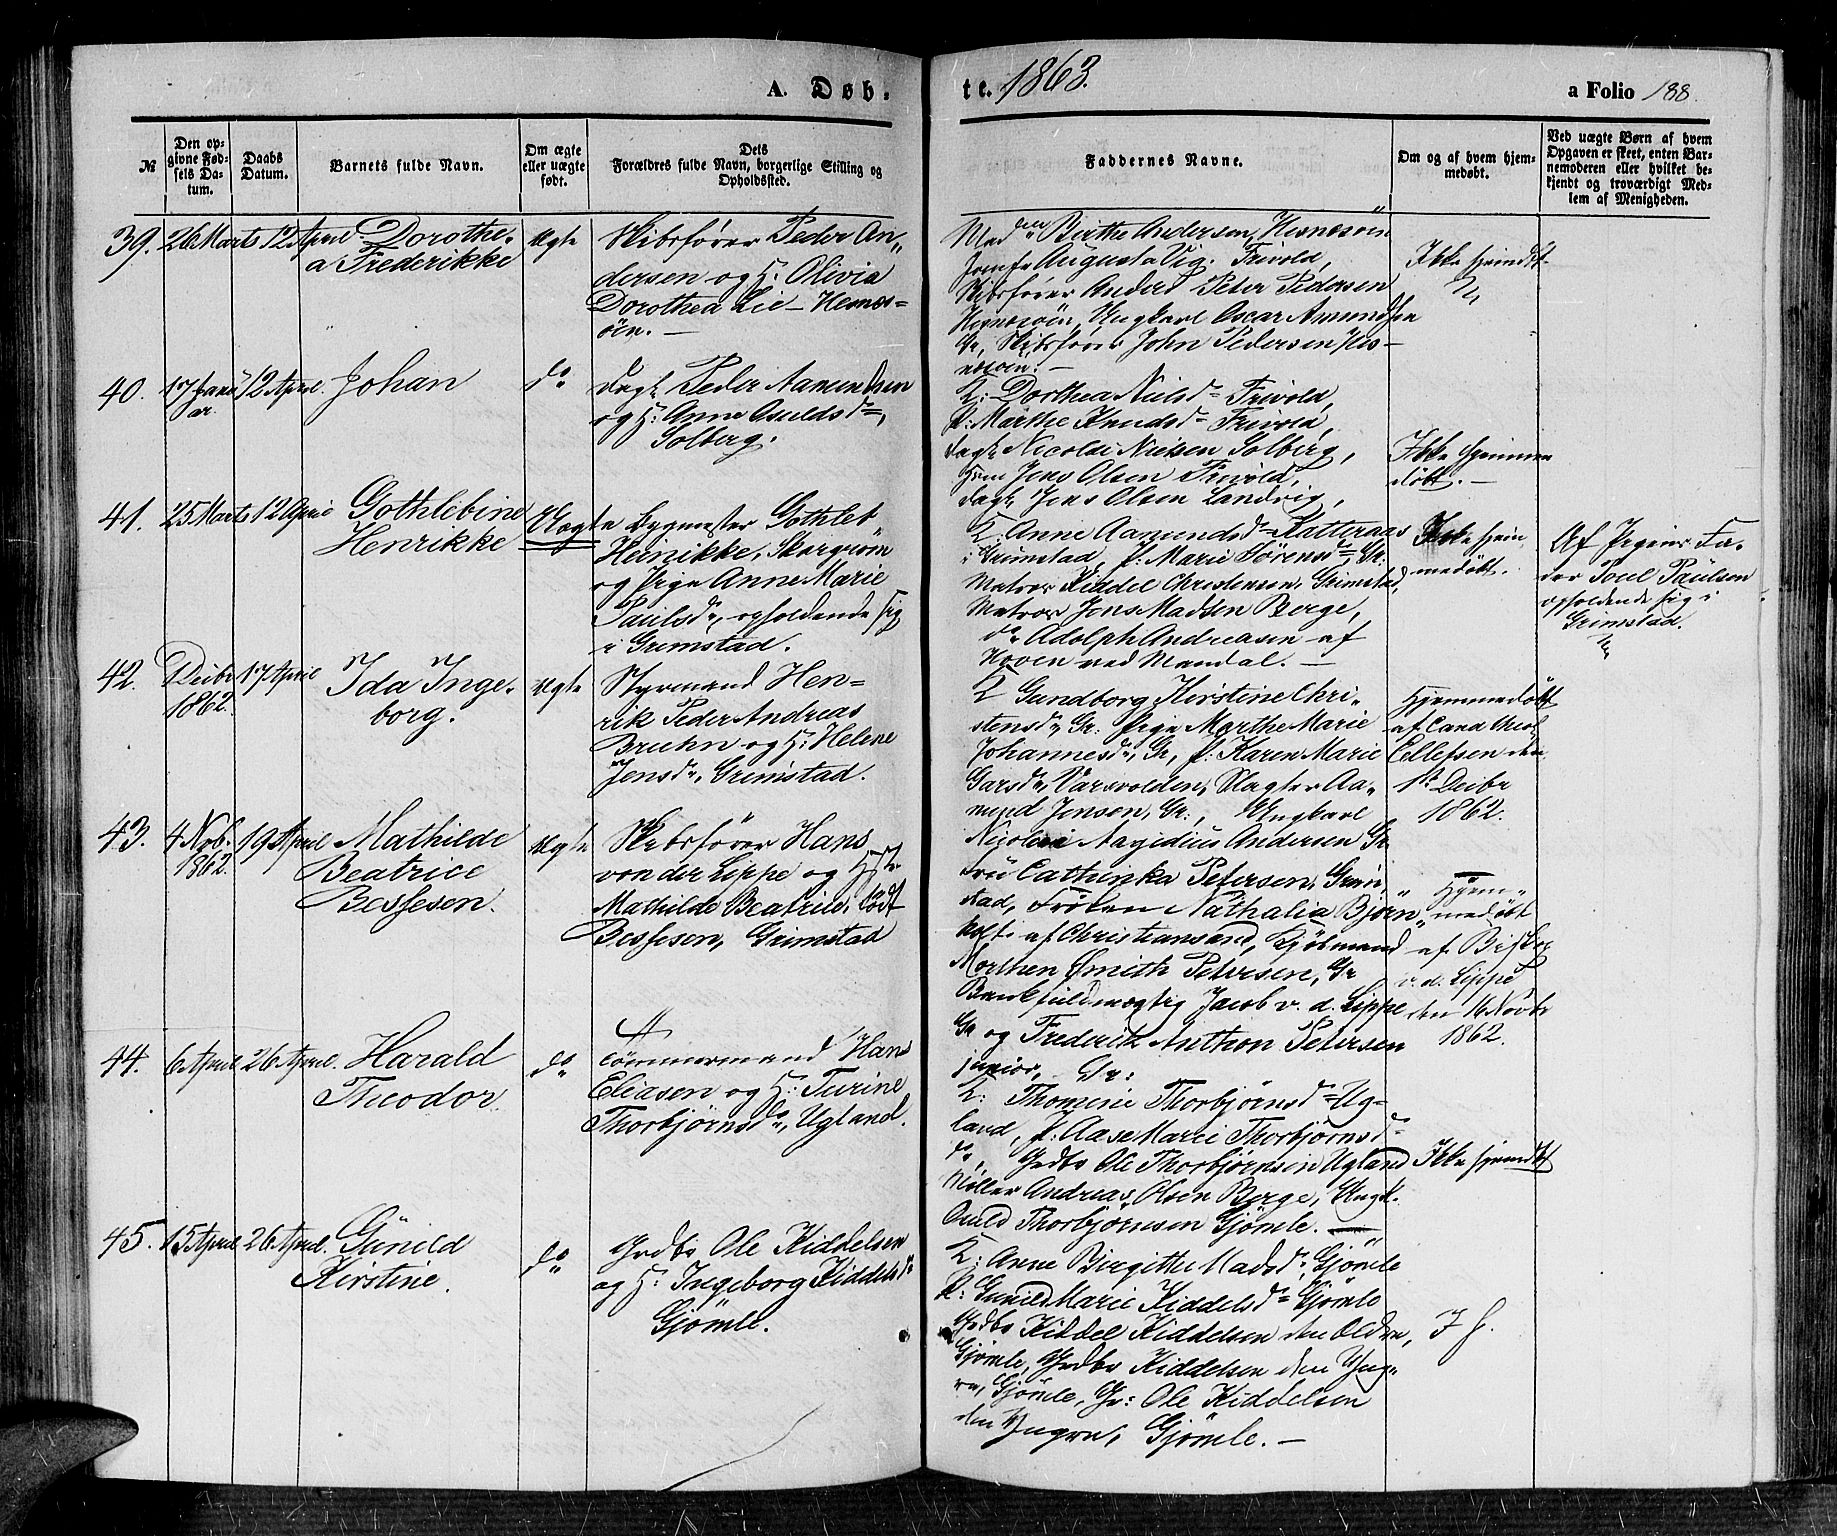 A. Døb-
te. 1863.
a Folio 188.
№
Den op-
givne Fød-
sels Da-
tum.
Daabs
Datum.
Barnets fulde Navn.
Om ægte
eller uægte
født.
Dets
Forældres fulde Navn, borgerlige Stilling og
Opholdssted.
Faddernes Navne.
Om og af hvem hjem-
medøbt.
Ved uægte Børn af hvem
Opgaven er skeet, enten Bar-
nemoderen eller hvilket be-
kjendt og troværdigt Med-
lem af Menigheden.
39. 26 Marts 12 April Dorothe-
a Frederikke
Ægte
Skibsfører Peder An-
dersen og H: Olivia
Dorothea Lie - Hesnes-
öen. -
Madm Birthe Andersen, Hesnesöen
Jomfr Augusta Vig. Frivold,
Skibsfører Anders Peter Pedersen
Hesnesöen, Ungkarl Oscar Amundsen
Gr, Skibsfører John Pedersen Hes-
nesöen. -
Ikke hjemdöbt
40. 17 Janu-
ar. 12 April. Johan
do
Dagl. Peder Aamundsen
og H: Anne Asulds d,
Solberg.
K: Dorthea Niels d Frivold,
P: Marthe Knuds d Frivold,
Dagl. Nicolai Nielsen Solberg,
Jens Olsen Frivold,
Dagl. Jens Olsen Landvig,
Ikke hjemme
döbt. -
41. 25 Marts 12 April Gothlebine
Henrikke
Uægte
Bygmester Gothleb
Heinikke,
og Pige Anne Marie
Pauls d, opholdende sig
i Grimstad.
K: Anne Aamunds d Katteraas
i Grimstad, P: Marie Sörens d Gr:
Matros Kiddel Christensen, Grimstad,
Matros Jens Madsen Berge,
do Adolph Andreasen af
Hoven ved Mandal. -
Ikke hjem
medöbt.
Af Pigens Fa-
der Poul Paulsen
opholdende sig i
Grimstad.
42. Decbr
1862. 17 April Ida Inge-
borg.
Ægte
Styrmand Hen-
rik Peder Andreas
Bruhn og H: Helene
Jens d, Grimstad.
K Gundborg Kirstine Chri-
stens d, Gr: Pige Marthe Marie
Johannes d, Gr, P: Karen Marie
Lars d, Varvolden, Slagter Aa-
mund Jensen, Gr:, Ungkarl
Nicolai Aagidius Andersen Gr
Hjemmedöbt
af Cand theol
Ellefsen den
1st Decbr
1862.
43. 4 Nob.
1862. 19 April Mathilde
Beatrice
Bessesen.
Ægte
Skibsfører Hans
von der Lippe og Hst
Mathilde Beatrice, född
Bessesen, Grimstad
Fru Cathinka Petersen, Grim-
stad, Fröken Nathalia Björn-
holt af Christiansand, Kjöbmand
Morthen Smith Petersen, Gr
Bankfuldmægtig Jacob v. d. Lippe
Gr og Frederik Anthon Petersen
junior, Gr:
Hjem-
medöbt
af Biskop
v. d. Lippe
den 16 Novbr
1862.
44. 6 April 26 April. Harald
Theodor
do
Tömmermand Hans
Eliasen og H: Turine
Thorbjörns d, Ugland.
K: Thomine Thorbjörns d Ug-
land, P. Aase Marie Thorbjörns d
do, Grdbr Ole Thorbjörnsen Ugland
Möller Andreas Olsen Berge, Ungk.
Thorbjörnsen Gjömle. -
Ikke hjemdöbt
45. 15 April 26 April. Gunild
Kirstine.
do
Grdbr Ole Kiddelsen
og H: Ingeborg Kiddels d
Gjömle.
K: Anne Birgitte Mads d, Gjömle
P: Gunild Marie Kiddels d Gjömle
Grdbr Kiddel Kiddelsen den Oldre,
Gjömle, Grdbr Kiddelsen den Yng-
re, Gjömle, Gr: Ole Kiddelsen
den Yngre, Gjömle. -
I h.